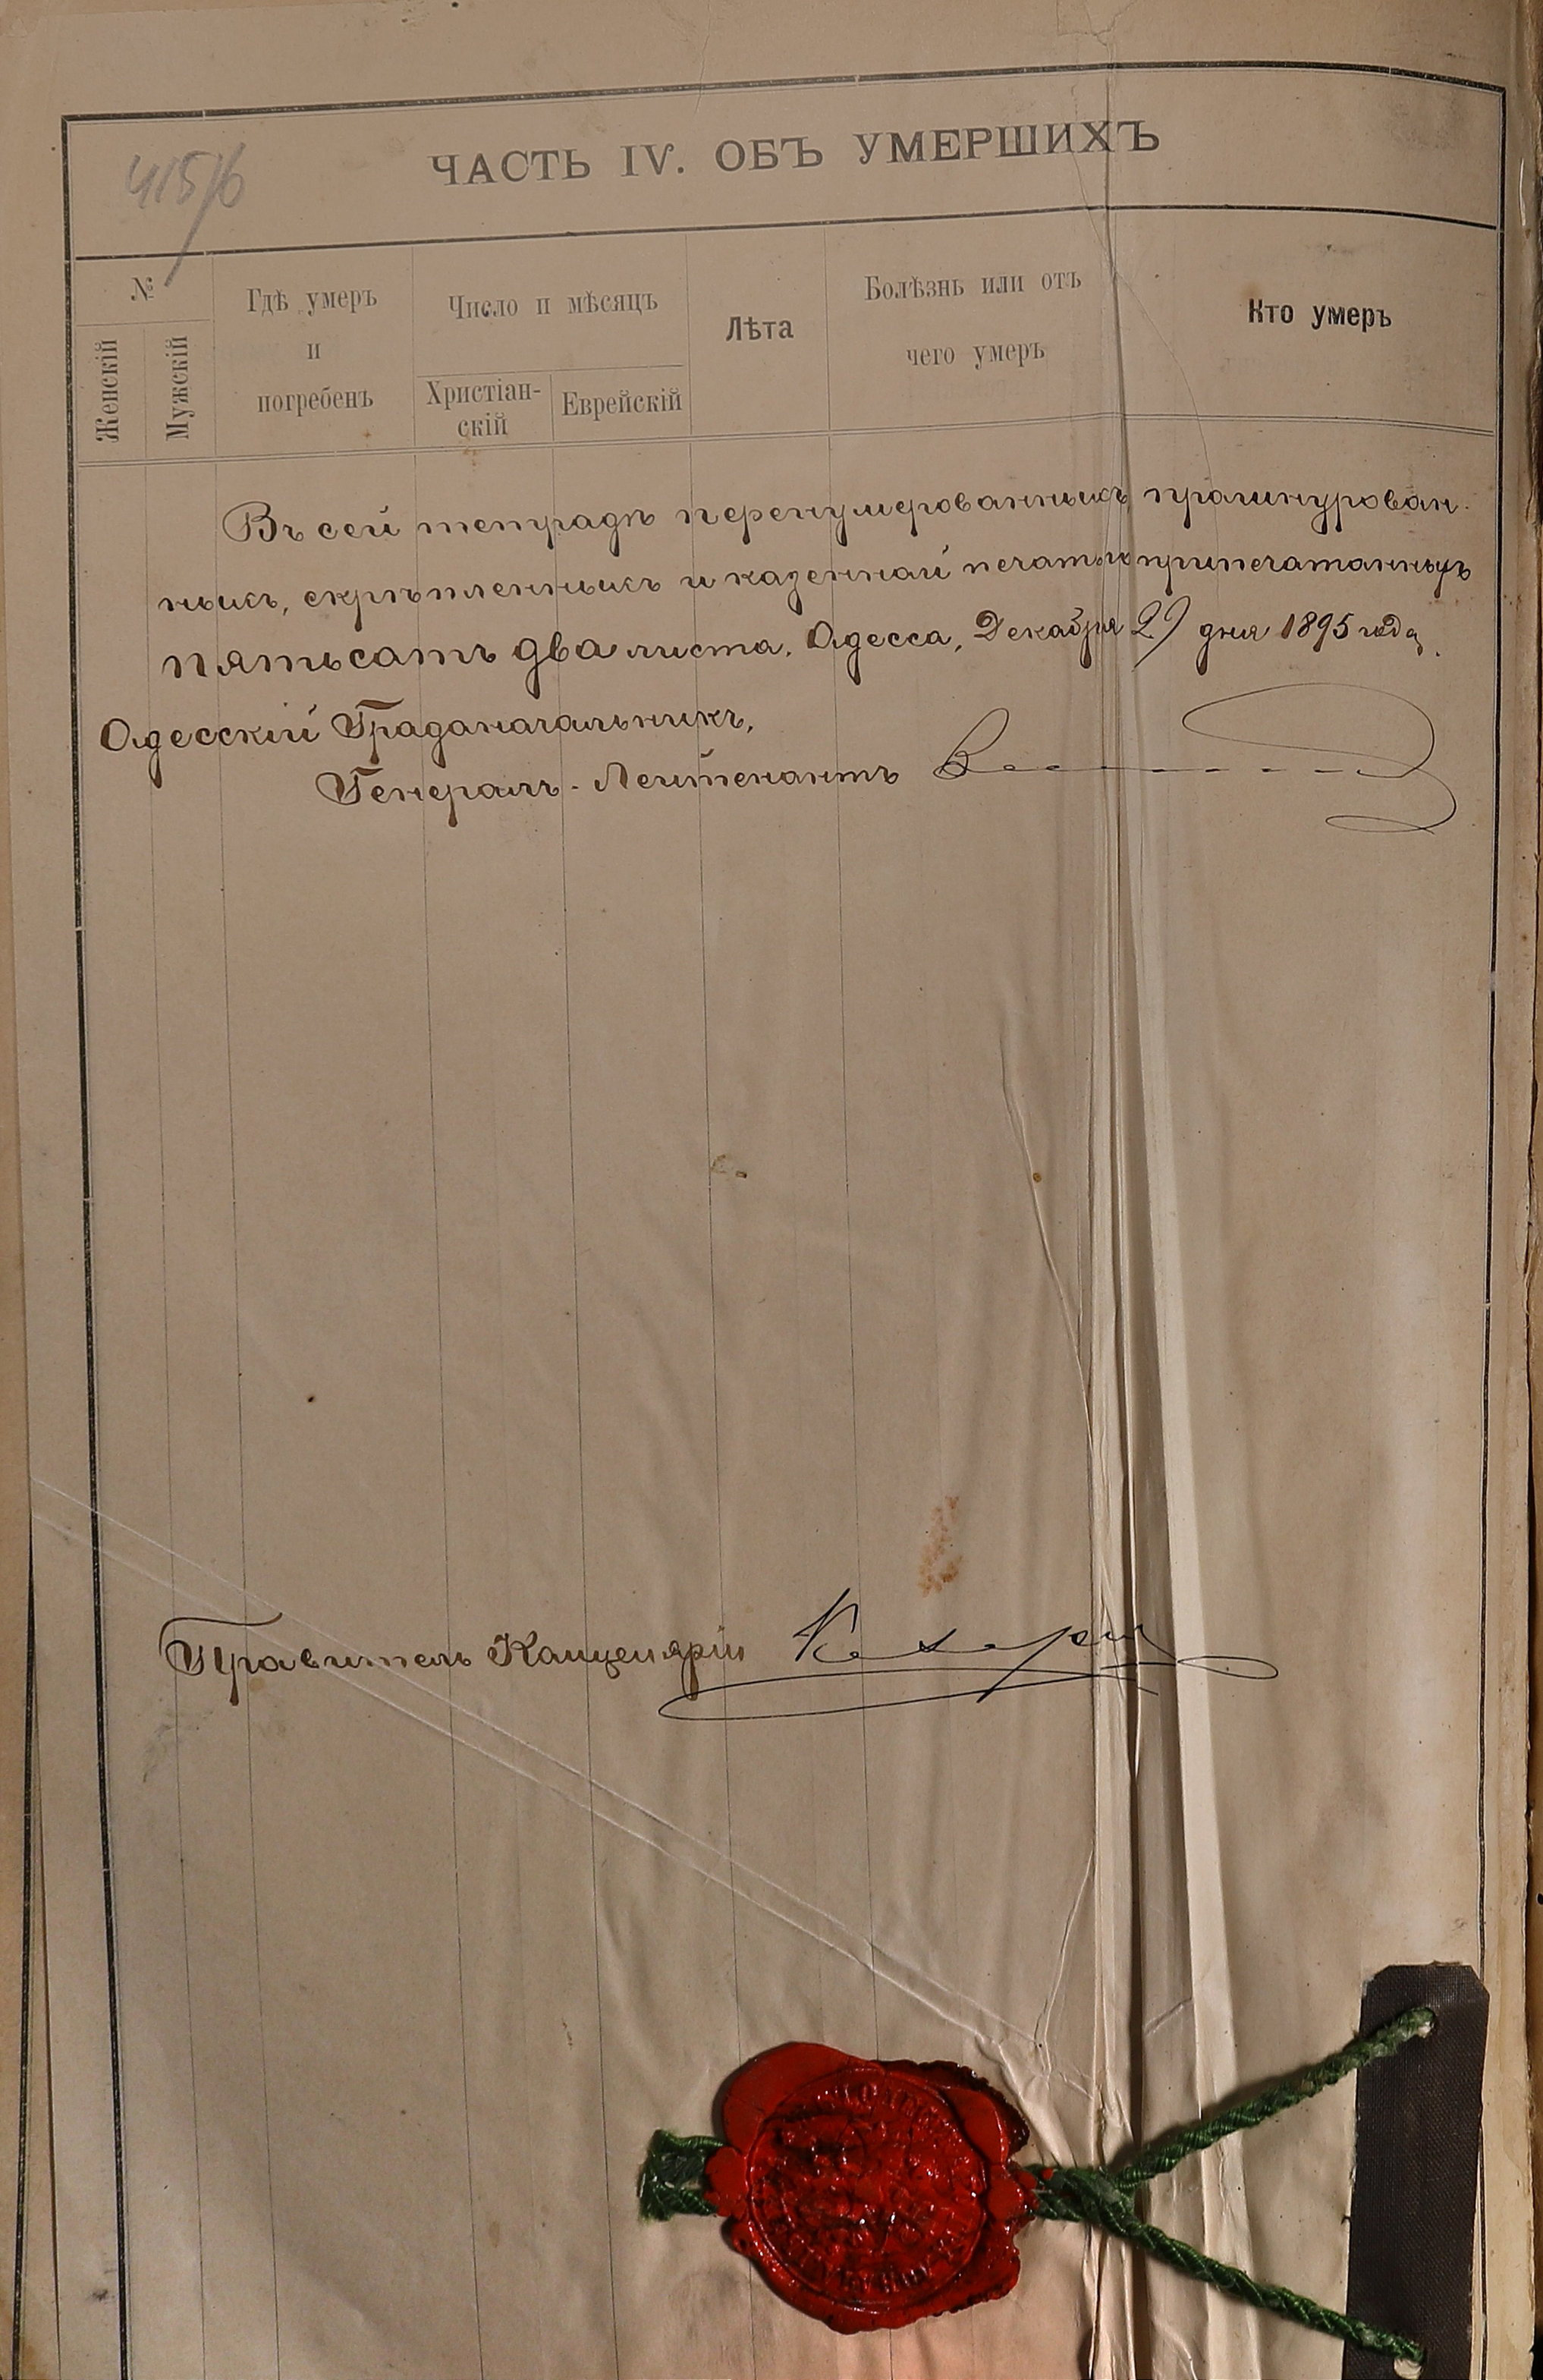 415/6
ЧАСТЬ IV. ОБЪ УМЕРШИХЪ
№
Женскій
Мужскій
Гдѣ умеръ
и
погребенъ
Число и мѣсяцъ
Христіан-
скій
Еврейскій
Лѣта
Болѣзнь или отъ
чего умеръ
Кто умеръ
Въ сей тетрадѣ перенумерованныхъ, прошнурован-
ныхъ, скрѣпленныхъ и казенной печатью припечатанныхъ
пятьсотъ два листа. Одесса, Декабря 29 дня 1895 года.
Одесскій Градоначальникъ,
Генералъ-Лейтенантъ
Правитель Канцеляріи